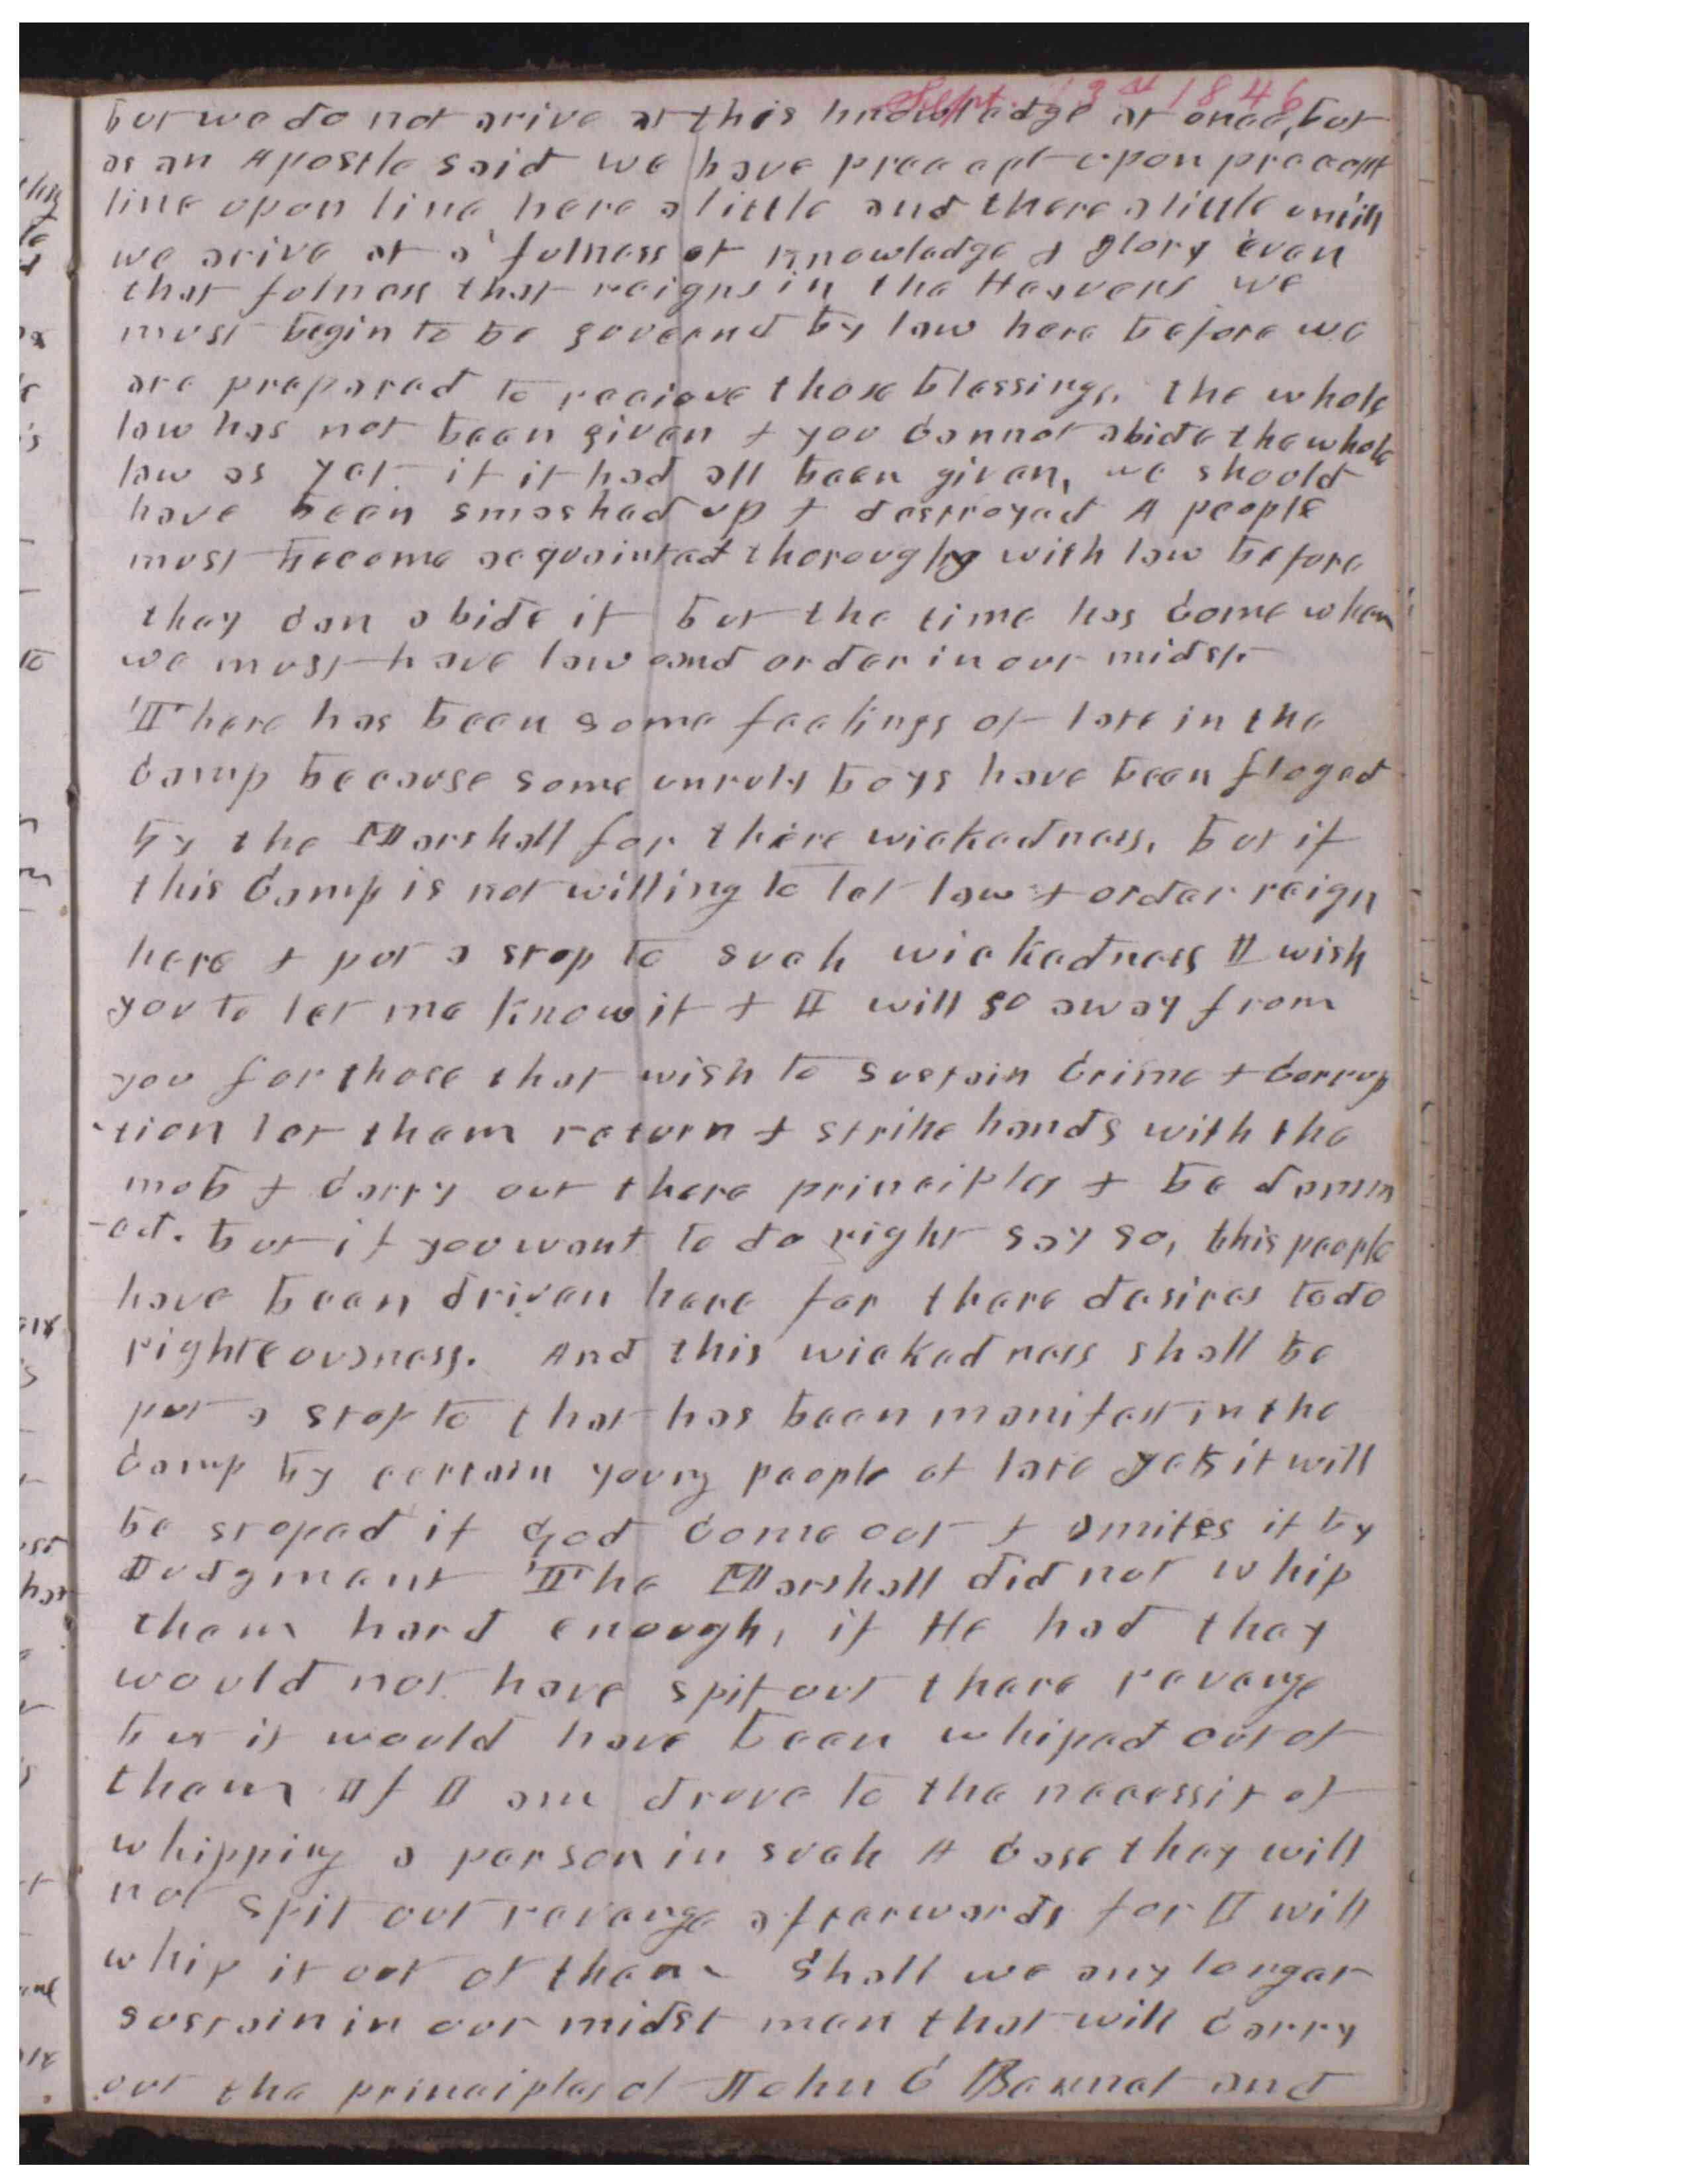 Sept. 13th 1846
but we do not arive at this knowledge at once, but
as an Apostle said we have precept upon precept
line upon line here a little and there a little untill
we arive at a fulness of knowledge & glory even
that fulness that reigns in the Heavens we
must begin to be governd by law here before we
are prepared to recieve those blessings. the whole
law has not been given & you cannot abide the whole
law as yet. if it had all been given, we should
have been smashed up & destroyed A people
must become acquainted thoroughly with law before
they can abide it but the time has come when
we must have law and order in our midst.
There has been some feelings of late in the
Camp because some unruly boys have been floged
by the Marshall for there wickedness, but if
this Camp is not willing to let law & order reign
here & put a stop to such wickedness I wish
you to let me know it & I will go away from
you for those that wish to sustain Crime & Corrup
-tion let them return & strike hands with the
mob & Carry out there principles & be damm
-ed. but if you want to do right say so, this people
have been driven here for there desires to do
righteousness. And this wickedness shall be
put a stop to that has been manifest in the
Camp by certain young people of late yets it will
be stoped if God Come out & smites it by
Judgment The Marshall did not whip
them hard enough, if He had they
would not have spit out there revenge
but it would have been whiped out of
them If I am drove to the necessit of
whipping a person in such A Case they will
not spit out revenge afterwards for I will
whip it out of them Shall we any longer
sustain in our midst men that will Carry
out the principles of John C Bennet and